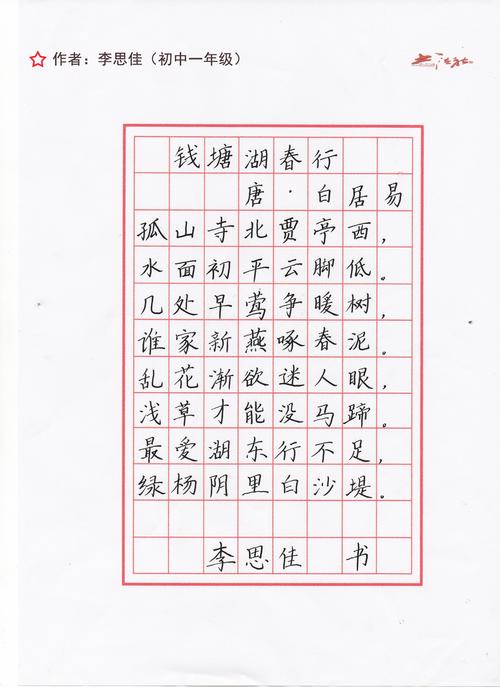 作者：李思佳（初中一年级）
钱塘湖春行
唐·白居易
孤山寺北贾亭西，
水面初平云脚低。
几处早莺争暖树，
谁家新燕啄春泥。
乱花渐欲迷人眼，
浅草才能没马蹄。
最爱湖东行不足，
绿杨阴里白沙堤。
李思佳 书